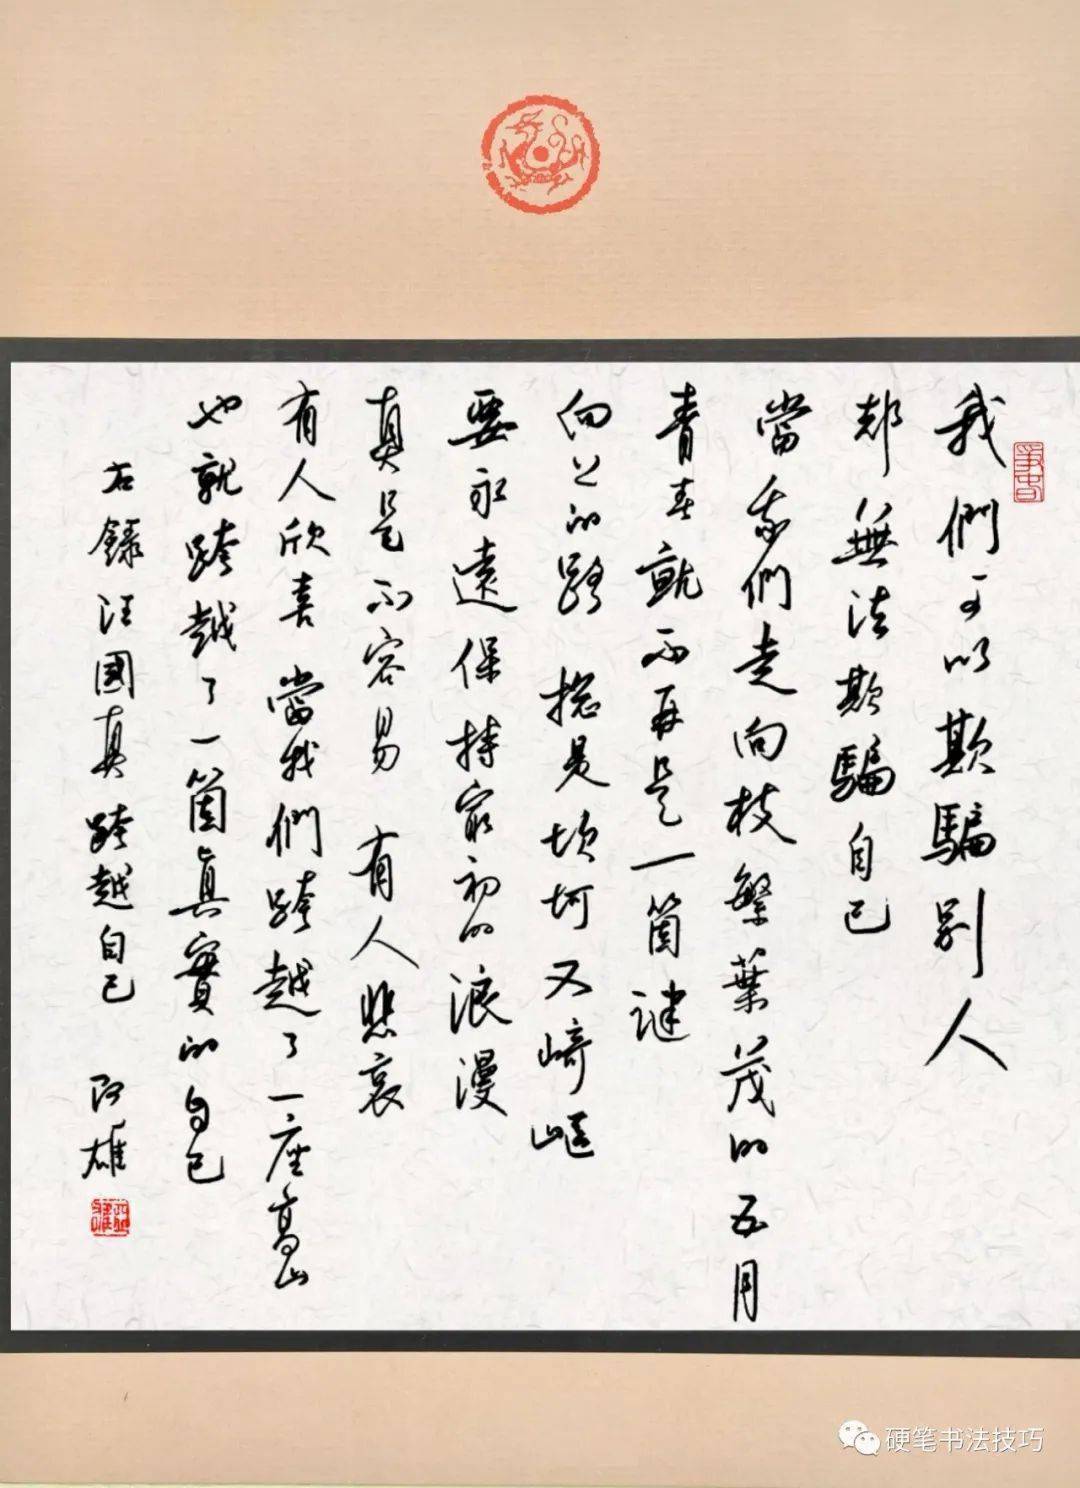 我們可以欺騙別人
却無法欺騙自己
當我們走向枝繁葉茂的五月
青春就不再是一箇謎
向上的路 揔是坎坷又崎嶇
要永遠保持最初的浪漫
真是不容易 有人悲哀
有人欣喜 當我們跨越了一座高山
也就跨越了一箇真實的自己
右錄汪國真跨越自己 阿雄
硬笔书法技巧